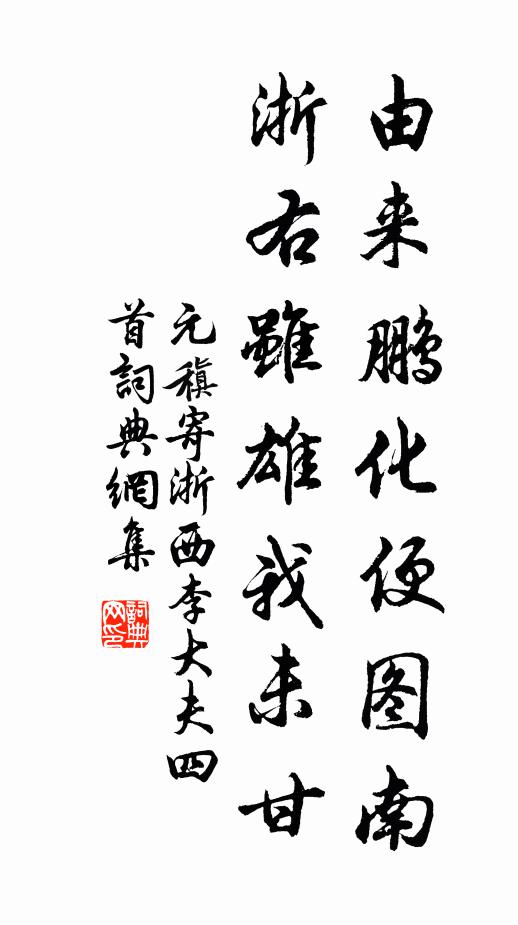 由来鹏化便图南
浙右雖雄我未甘
元稹寄浙西李大夫四
首詞典網集
詞典网印